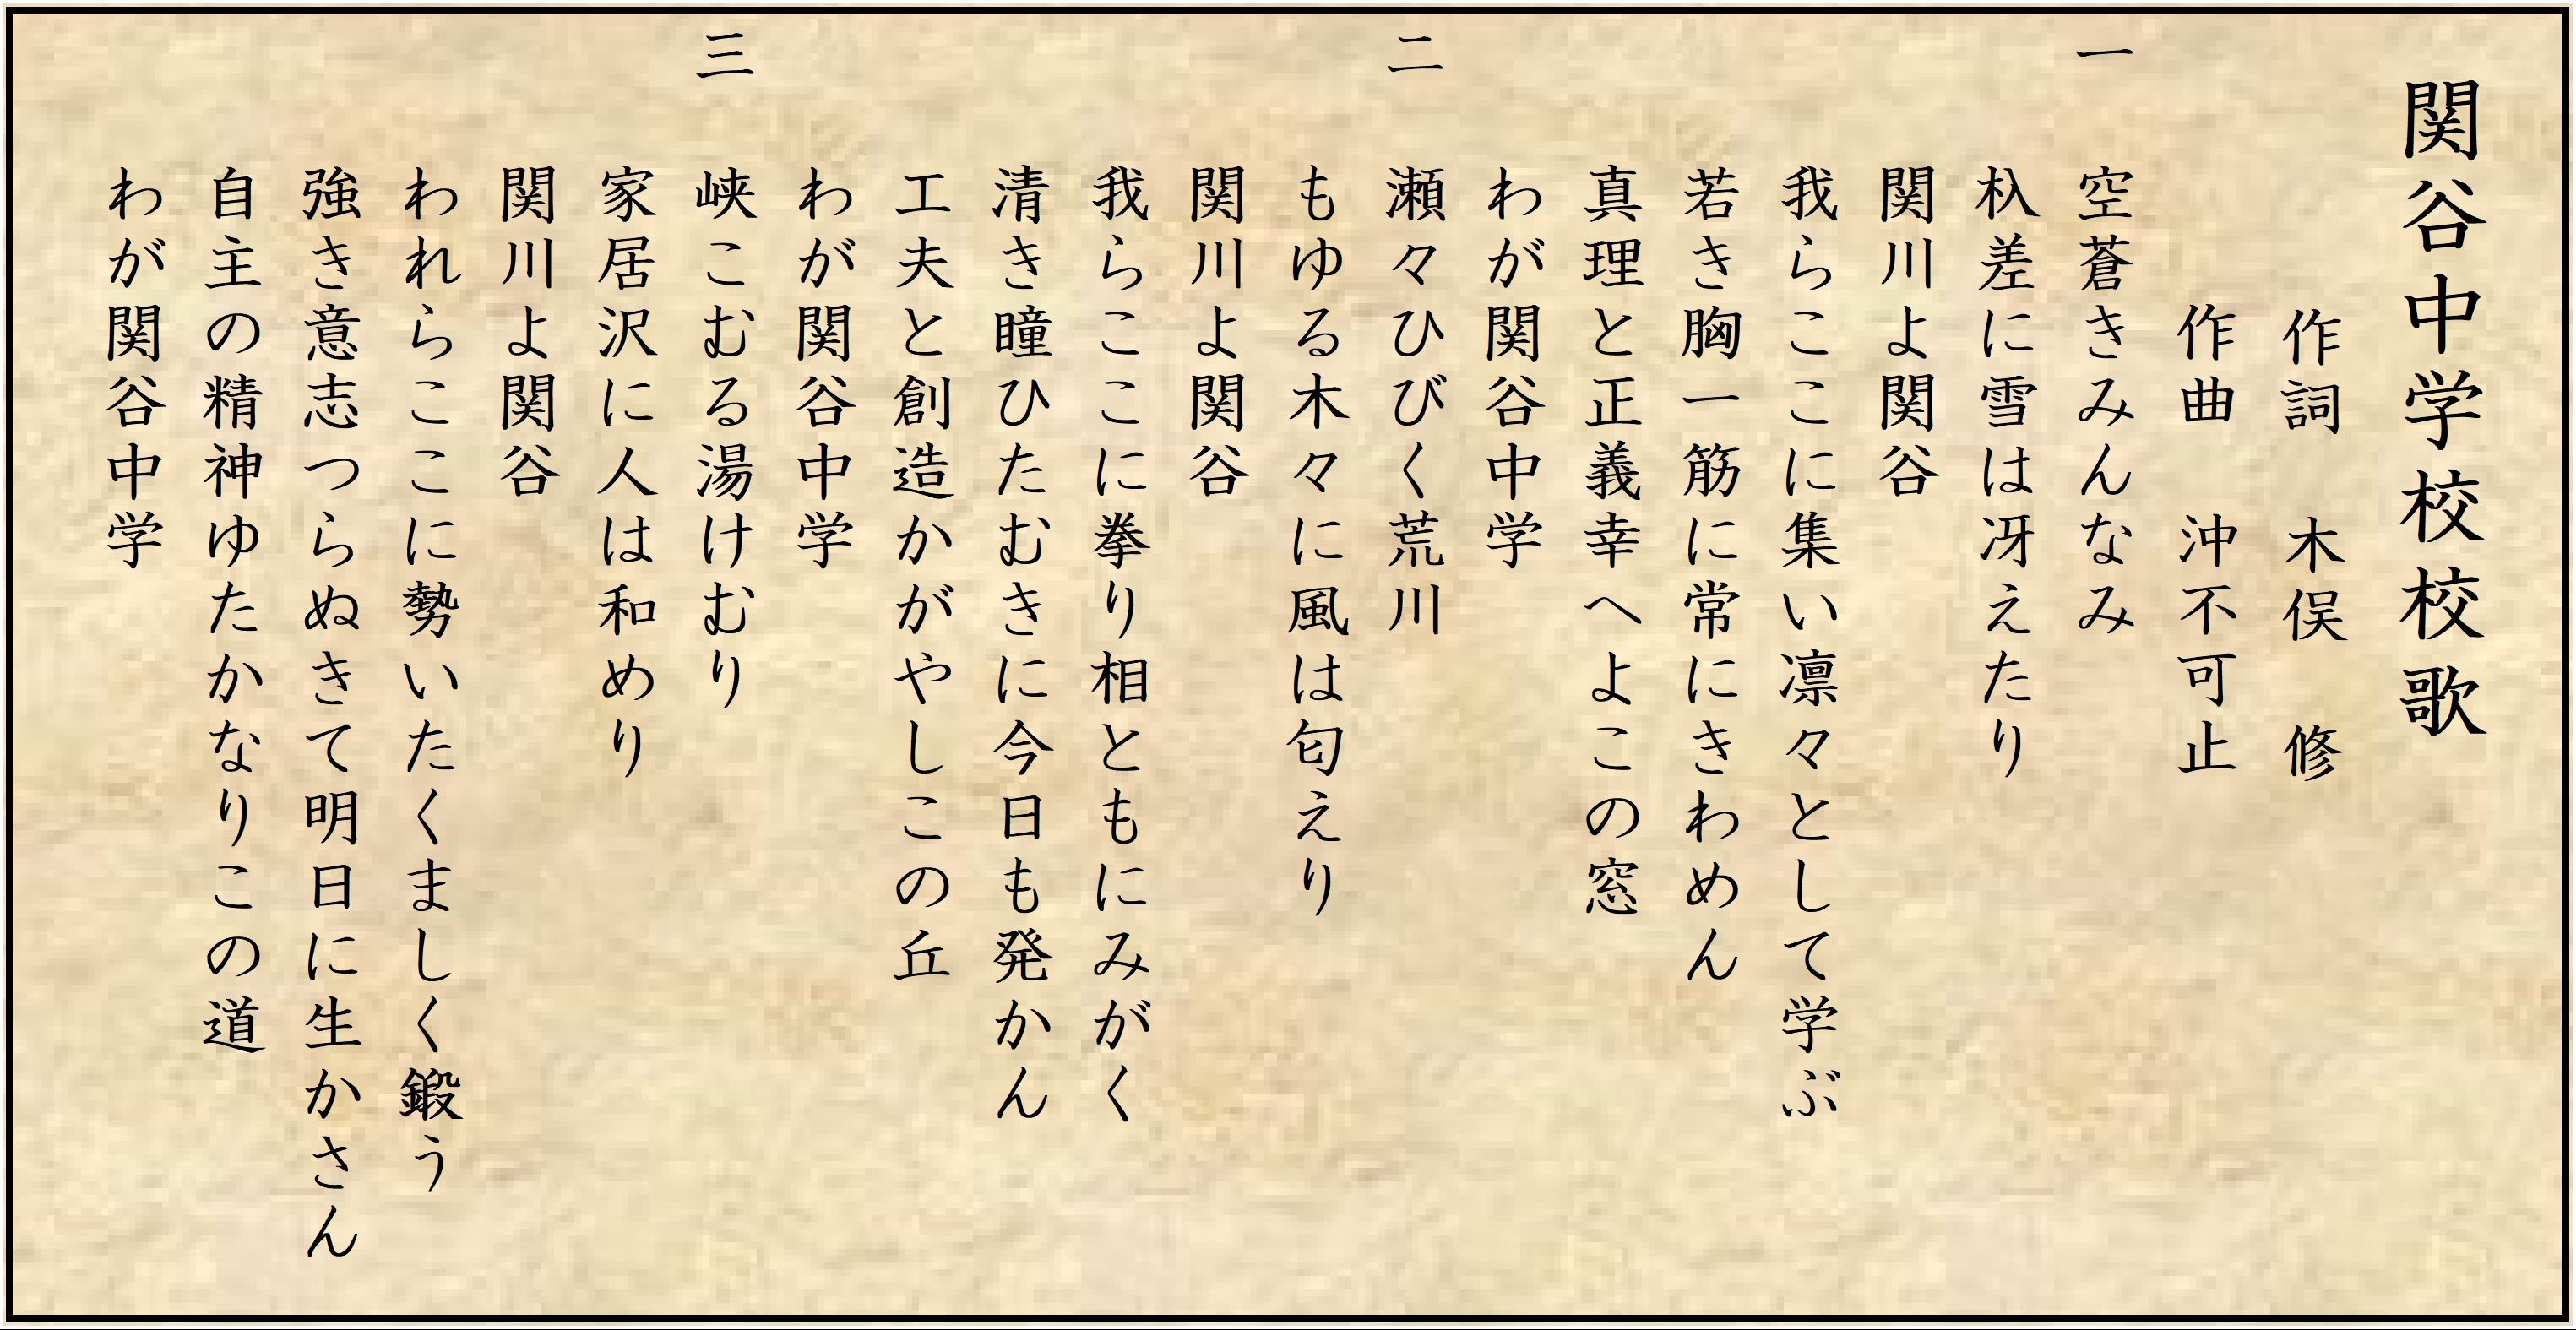 関谷中学校校歌
作詞　木俣　修
作曲　沖不可止
一
空蒼きみんなみ
杁差に雪は冴えたり
関川よ関谷
我らここに集い凛々として学ぶ
若き胸一筋に常にきわめん
真理と正義幸へよこの窓
わが関谷中学
二
瀬々ひびく荒川
もゆる木々に風は匂えり
関川よ関谷
我らここに拳り相ともにみがく
清き瞳ひたむきに今日も発かん
工夫と創造かがやしこの丘
わが関谷中学
三
峡こむる湯けむり
家居沢に人は和めり
関川よ関谷
われらここに勢いたくましく鍛う
強き意志つらぬきて明日に生かさん
自主の精神ゆたかなりこの道
わが関谷中学